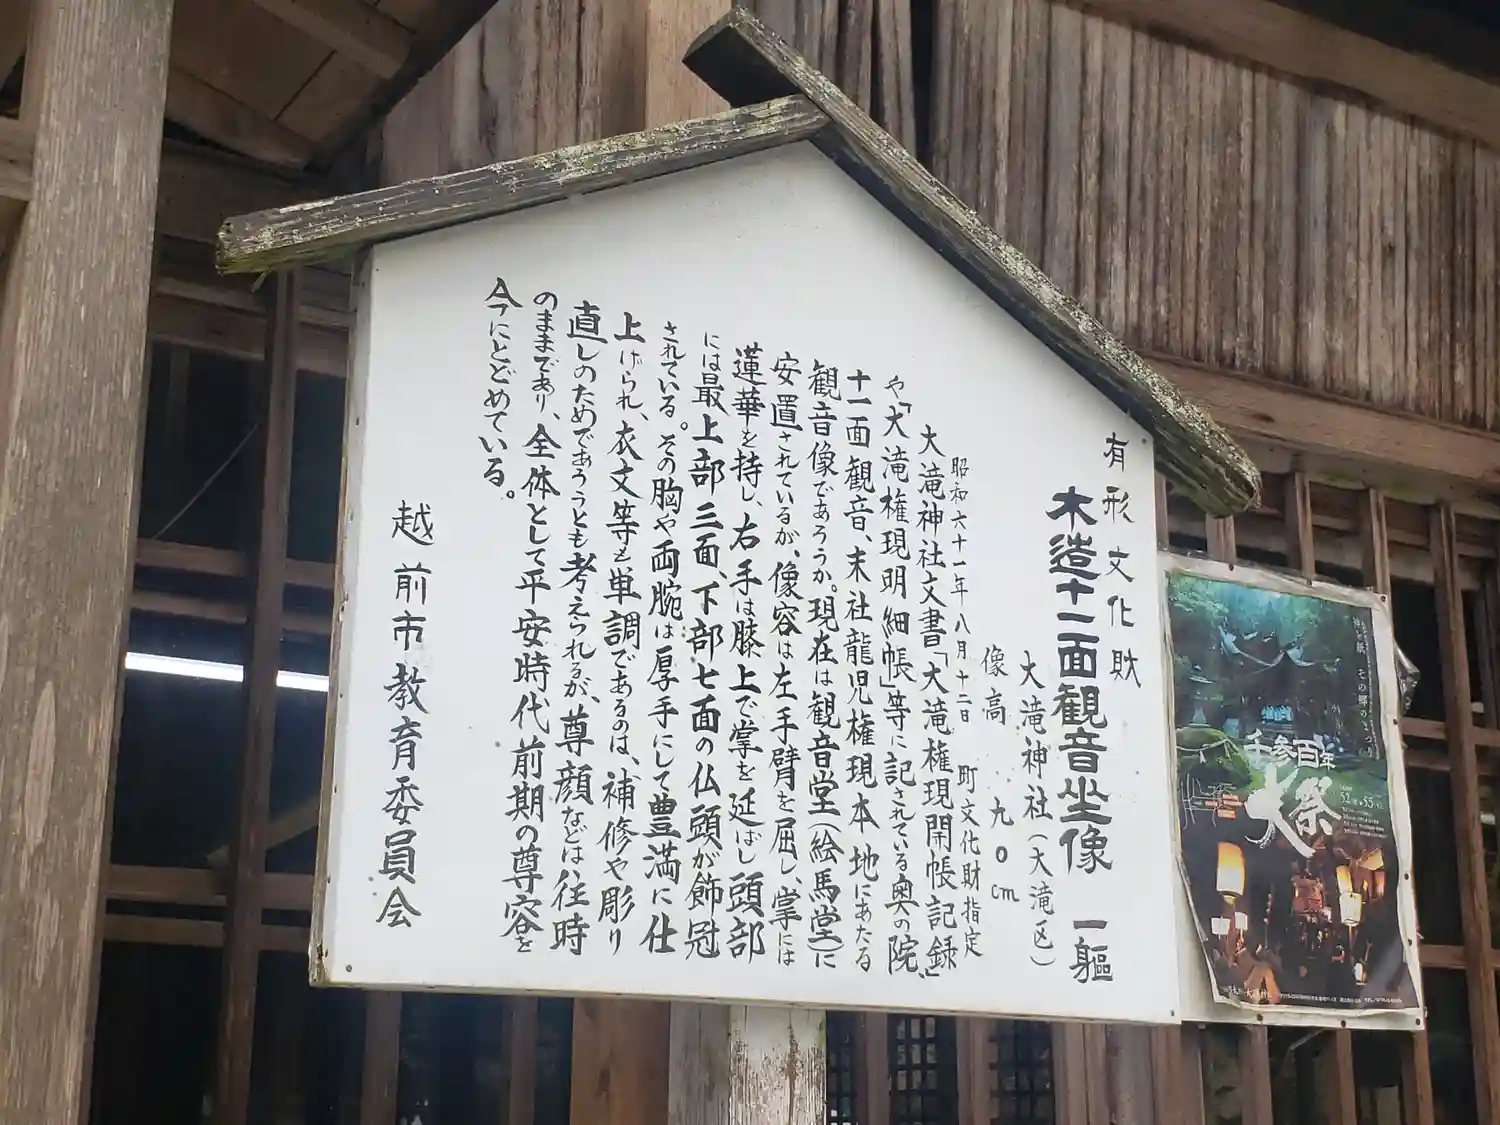 有形文化財
木造十一面観音坐像 一軀
大滝神社（大滝区）
像高 九0cm
昭和六十一年八月十二日 町文化財指定
大滝神社文書「大滝権現開帳記録」
や「大滝権現明細帳」等に記されている奥の院、
十一面観音、末社龍児権現本地にあたる
観音像であろうか。現在は観音堂（絵馬堂）に
安置されているが、像容は左手臂を屈し、掌には
蓮華を持し、右手は膝上で掌を延ばし頭部
には最上部三面、下部七面の仏頭が飾冠
されている。その胸や両腕は厚手にして豊満に仕
上げられ、衣文等も単調であるのは、補修や彫り
直しのためであろうとも考えられるが、尊顔などは往時
のままであり、全体として平安時代前期の尊容を
今にとどめている。
越前市教育委員会
千参百年
大祭